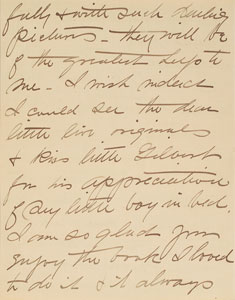 fully & with such darling
pictures - they will be
of the greatest help to
me - I wish indeed
I could see the dear
little live originals
& kiss little Gilbert
for his appreciation
of my little boy in bed.
I am so glad you
enjoy the book I loved
to do it & it always